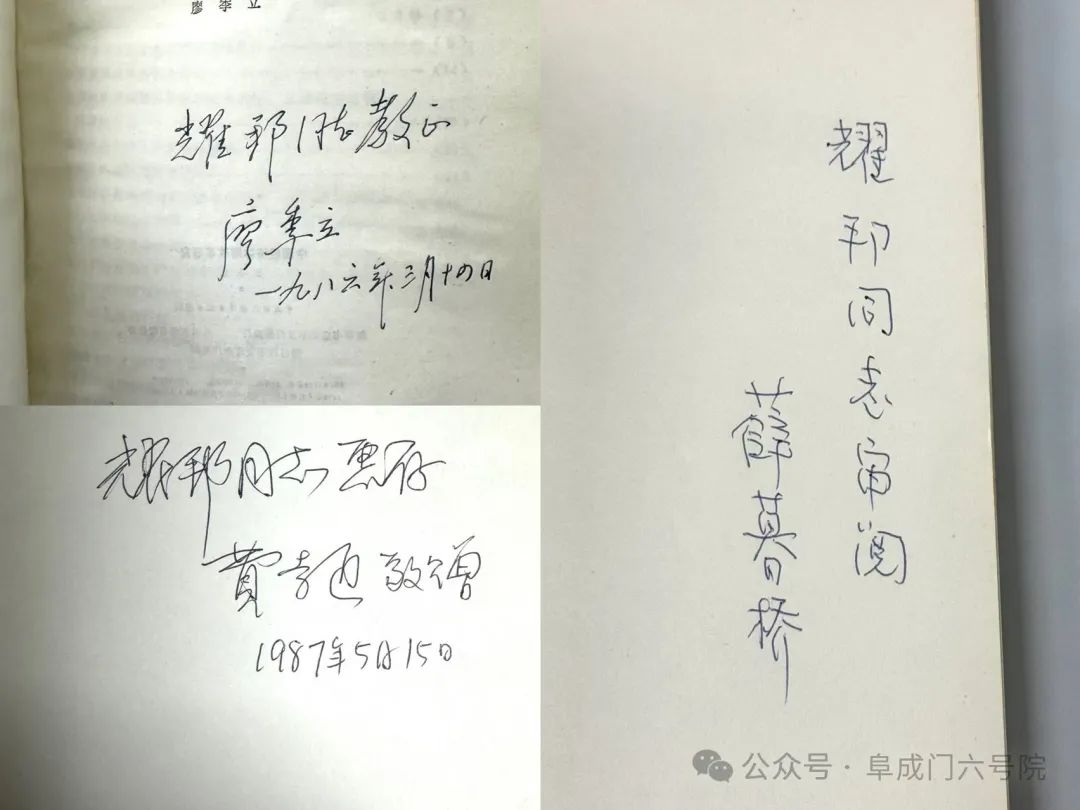 耀邦同志教正
廖季立
一九八六年三月十四日
耀邦同志惠存
費孝通敬赠
1987年5月15日
耀邦同志审阅
薛暮桥
公众号·阜成门六号院